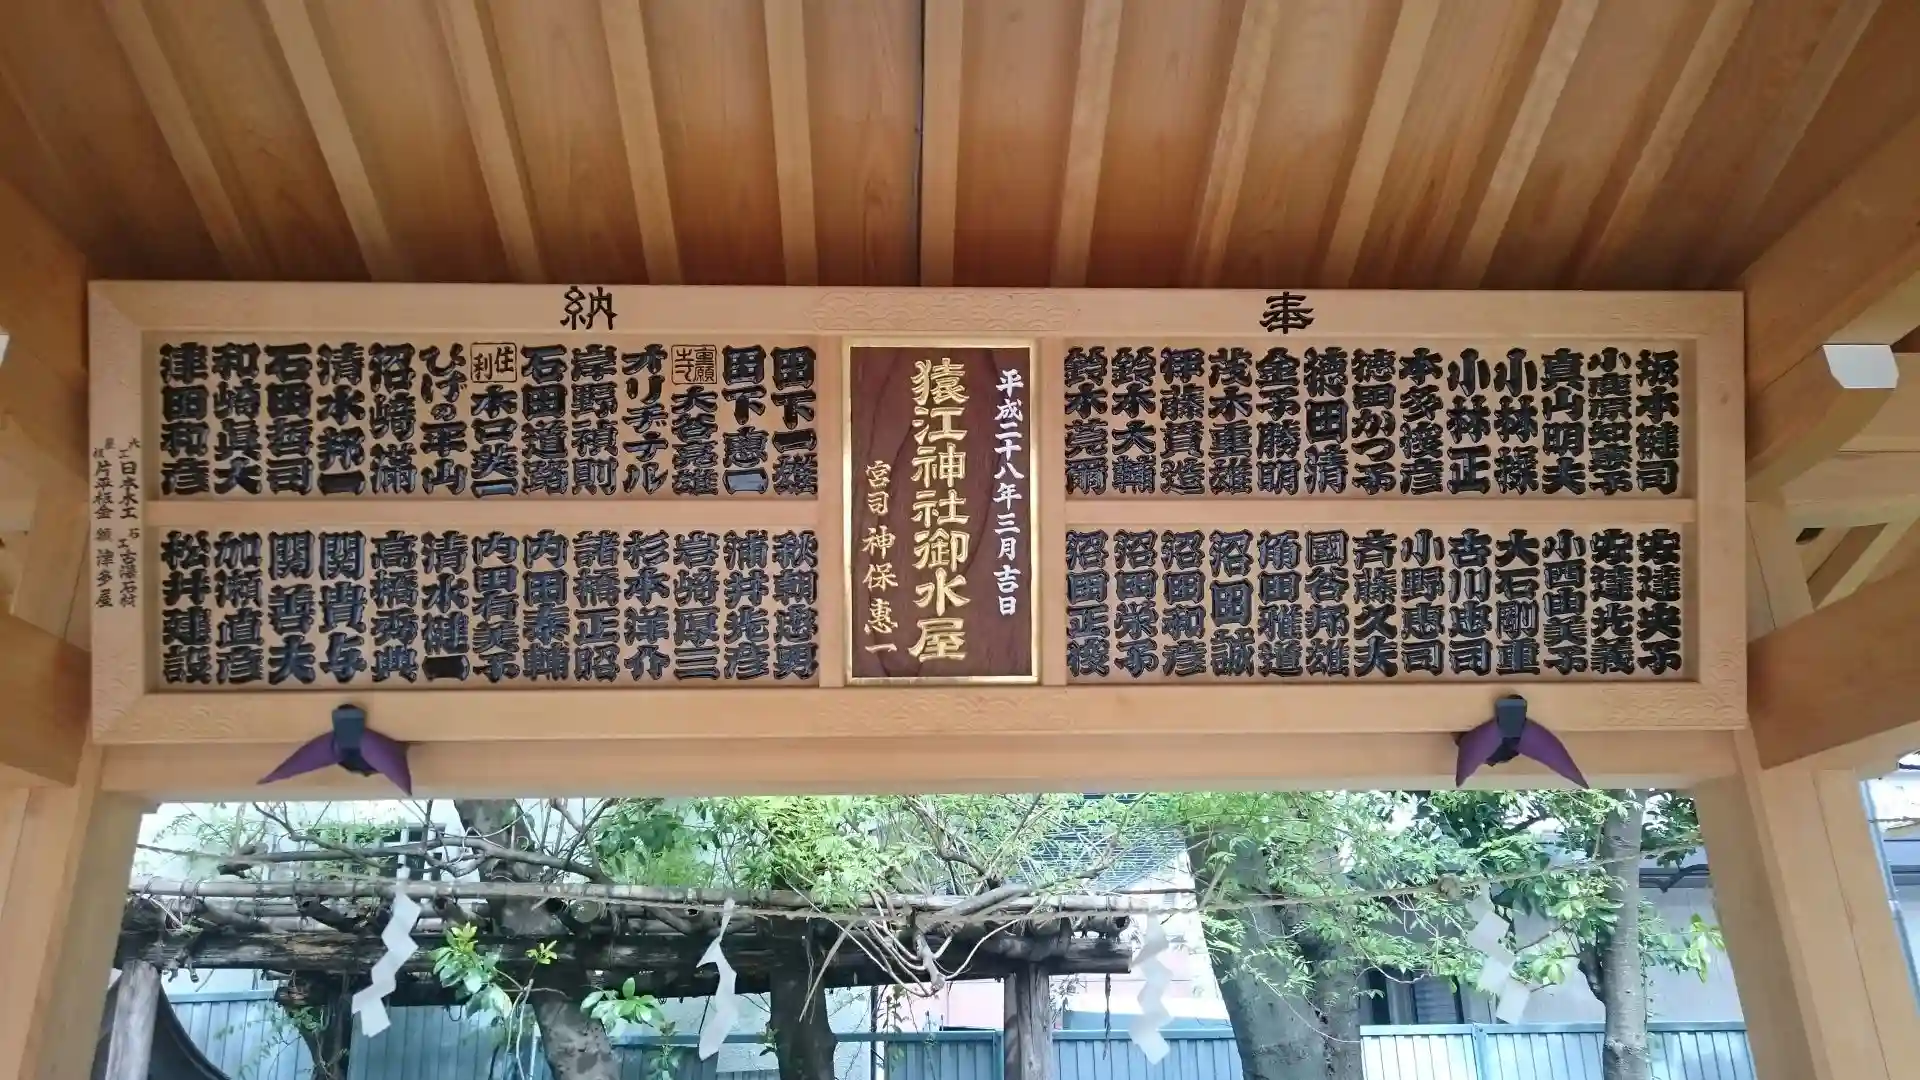 奉納
坂本健司
小藤原知恵子
真山明夫
小林操
小林正
本多俊彦
徳田かつ子
徳田清
金子勝明
茂木重雄
伊藤貴造
鈴木大輔
鈴木莞爾
安達央子
安達光義
小西由美子
大石剛重
古川忠司
小野恵司
斉藤久夫
國谷邦雄
角田雅道
沼田誠
沼田和彦
沼田栄子
沼田正俊
平成二十八年三月吉日
猿江神社御水屋
宮司 神保惠一
田下一雄
田下惠一
重願寺 大谷亮雄
オリヂナル
岸野禎則
石田道路
住利 木口英一
ひげの平山
沼崎満
清水邦一
石田哲司
和崎眞夫
津田和彦
秋朝忠男
浦井光彦
岩崎厚三
杉本洋介
諸橋正昭
内田泰輔
内田有美子
清水健一
高橋秀典
関貴与
関善夫
加瀬直彦
松井建設
大工 日本木工
石工 古澤石材
屋根 片平板金
額 津多屋